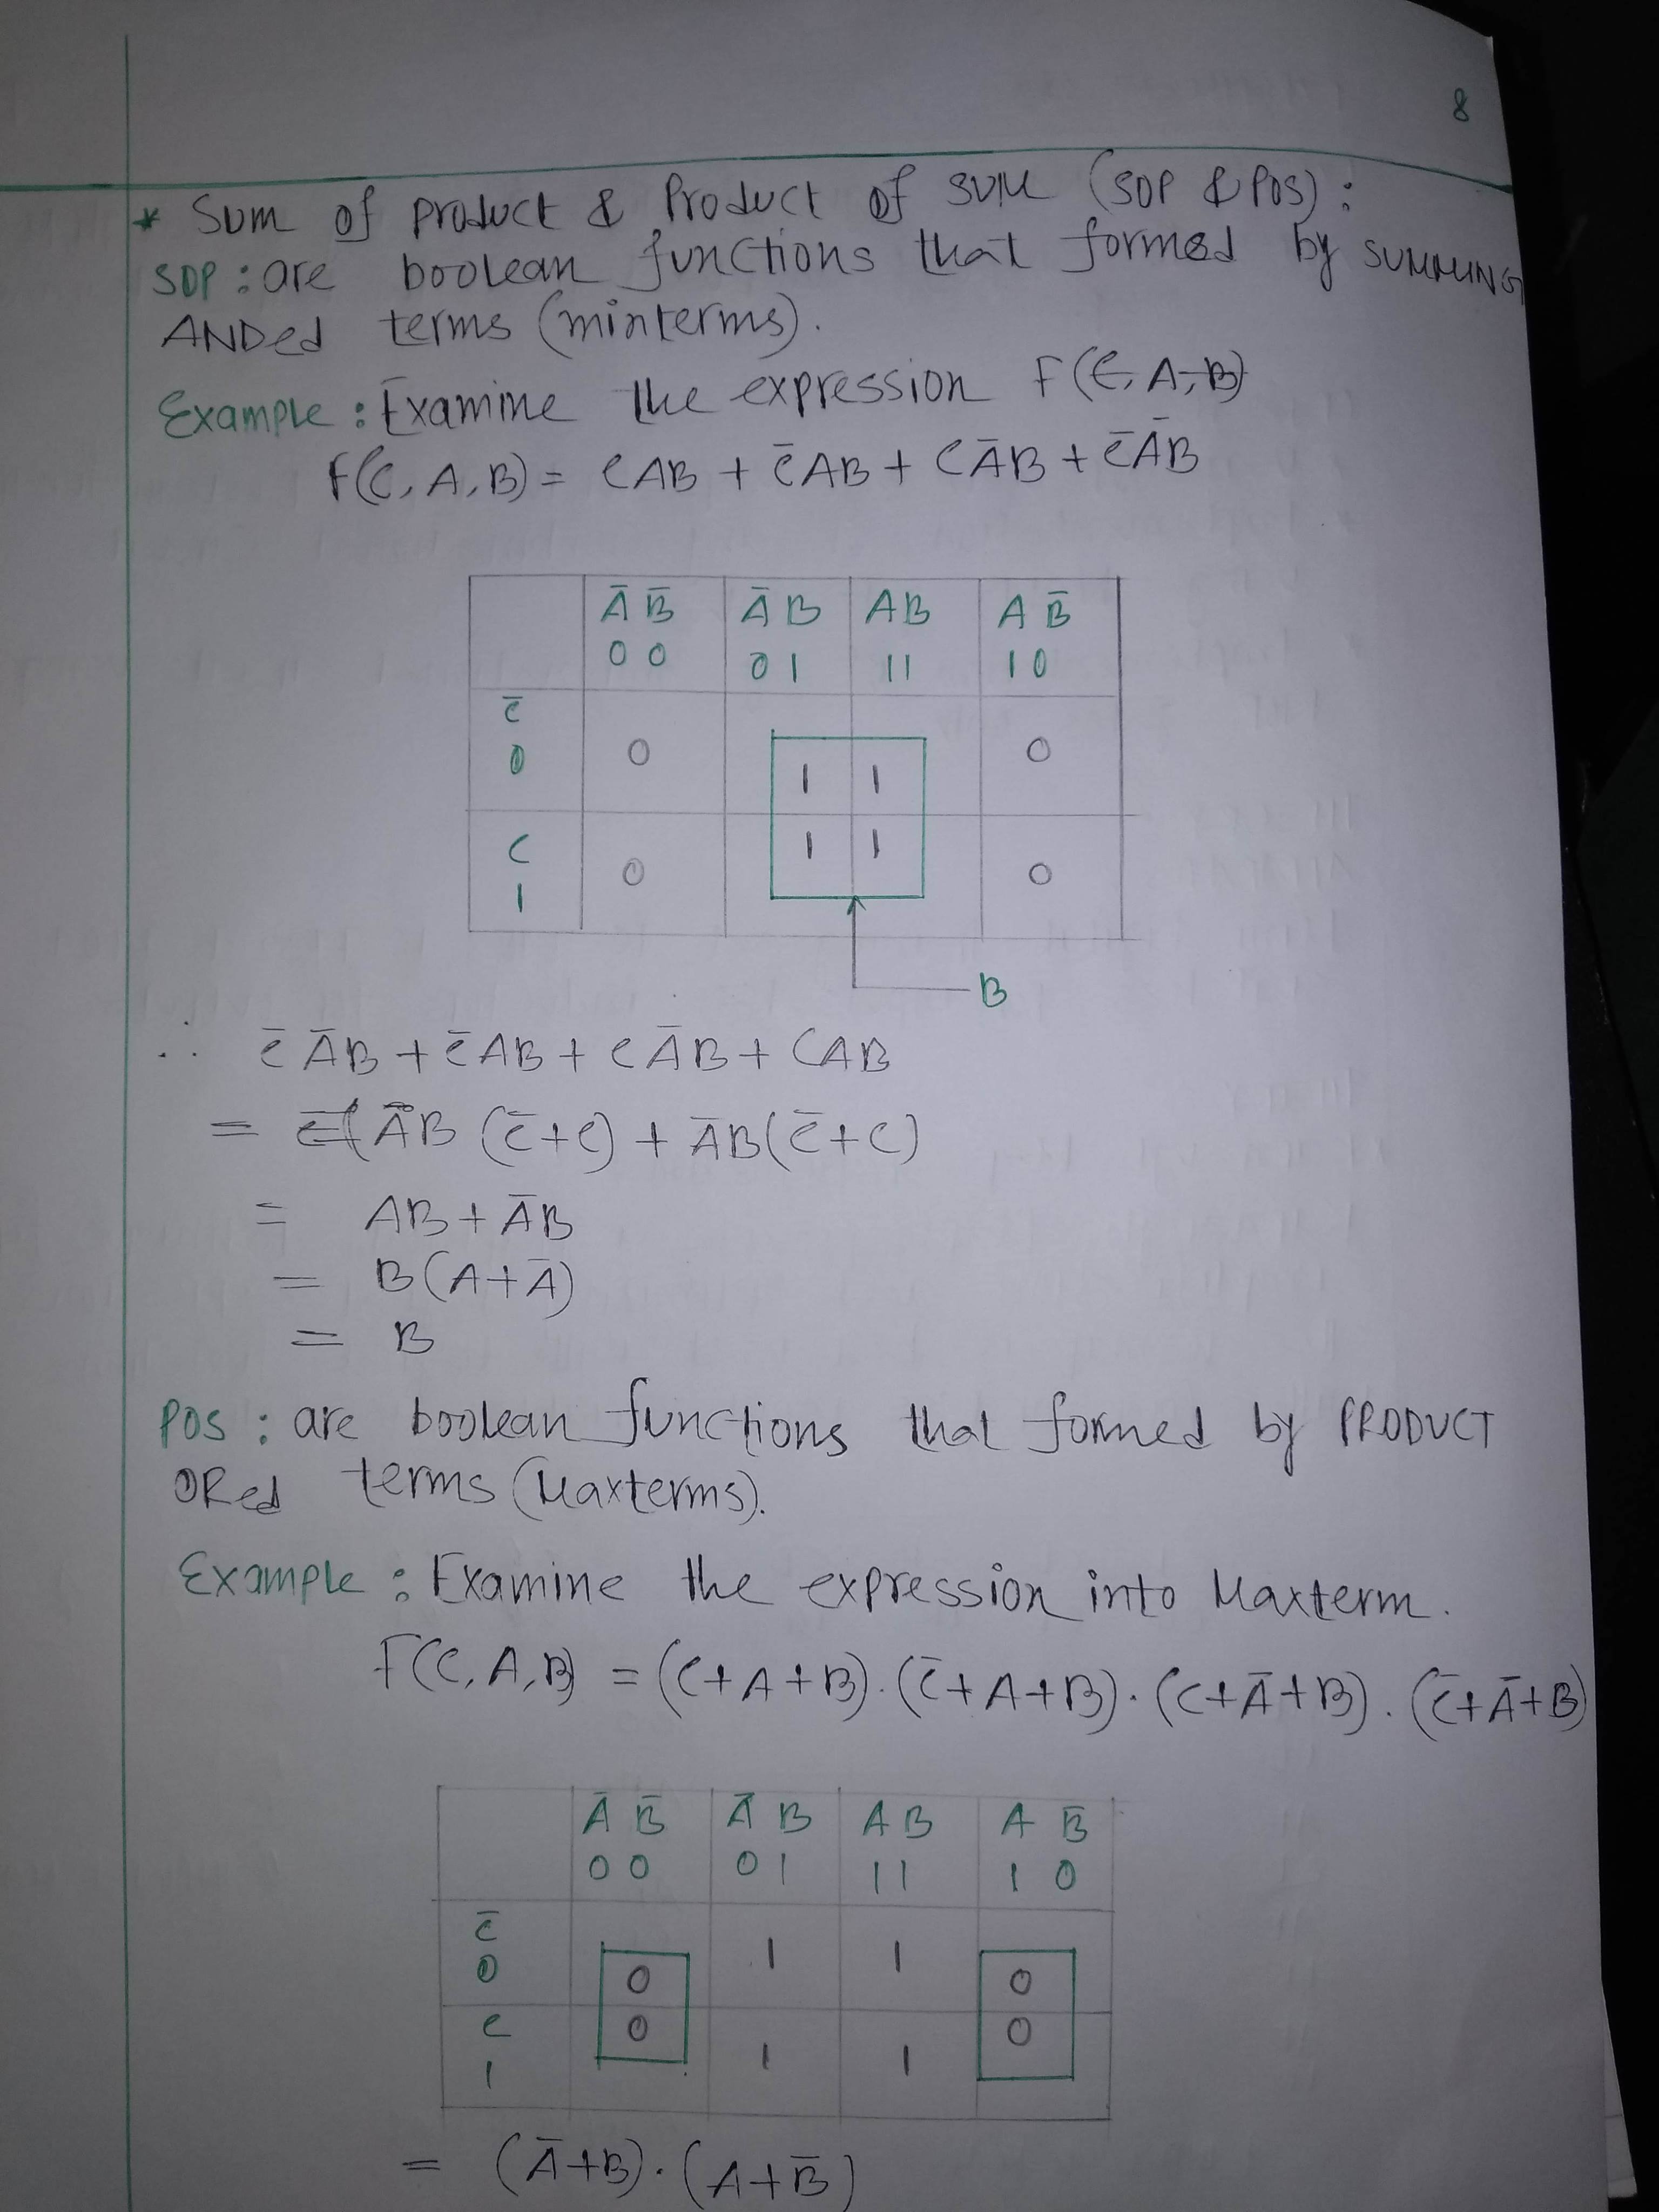 8
* Sum of product & Product of SUM (SOP & POS) :
SOP : are boolean functions that formed by SUMMING
ANDed terms (minterms).
Example : Examine the expression F(C, A, B)
F(C, A, B) = CAB + C̄AB + CĀB + C̄ĀB
Ā B̄ Ā B AB A B̄
0 0 0 1 11 1 0
C̄
0 0 1 1 0
C
1 0 1 1 0
B
∴ C̄ĀB + C̄AB + CĀB + CAB
= ĀB (C̄+C) + ĀB(C̄+C)
= AB + ĀB
= B(A+Ā)
= B
POS : are boolean functions that formed by PRODUCT
ORed terms (Maxterms).
Example : Examine the expression into Maxterm.
F(C, A, B) = (C+A+B) . (C̄+A+B) . (C+Ā+B) . (C̄+Ā+B)
Ā B̄ Ā B A B A B̄
0 0 0 1 1 1 1 0
C̄
0 0 1 1 0
C 0 0
1 1 1
= (Ā+B) . (A+B̄)